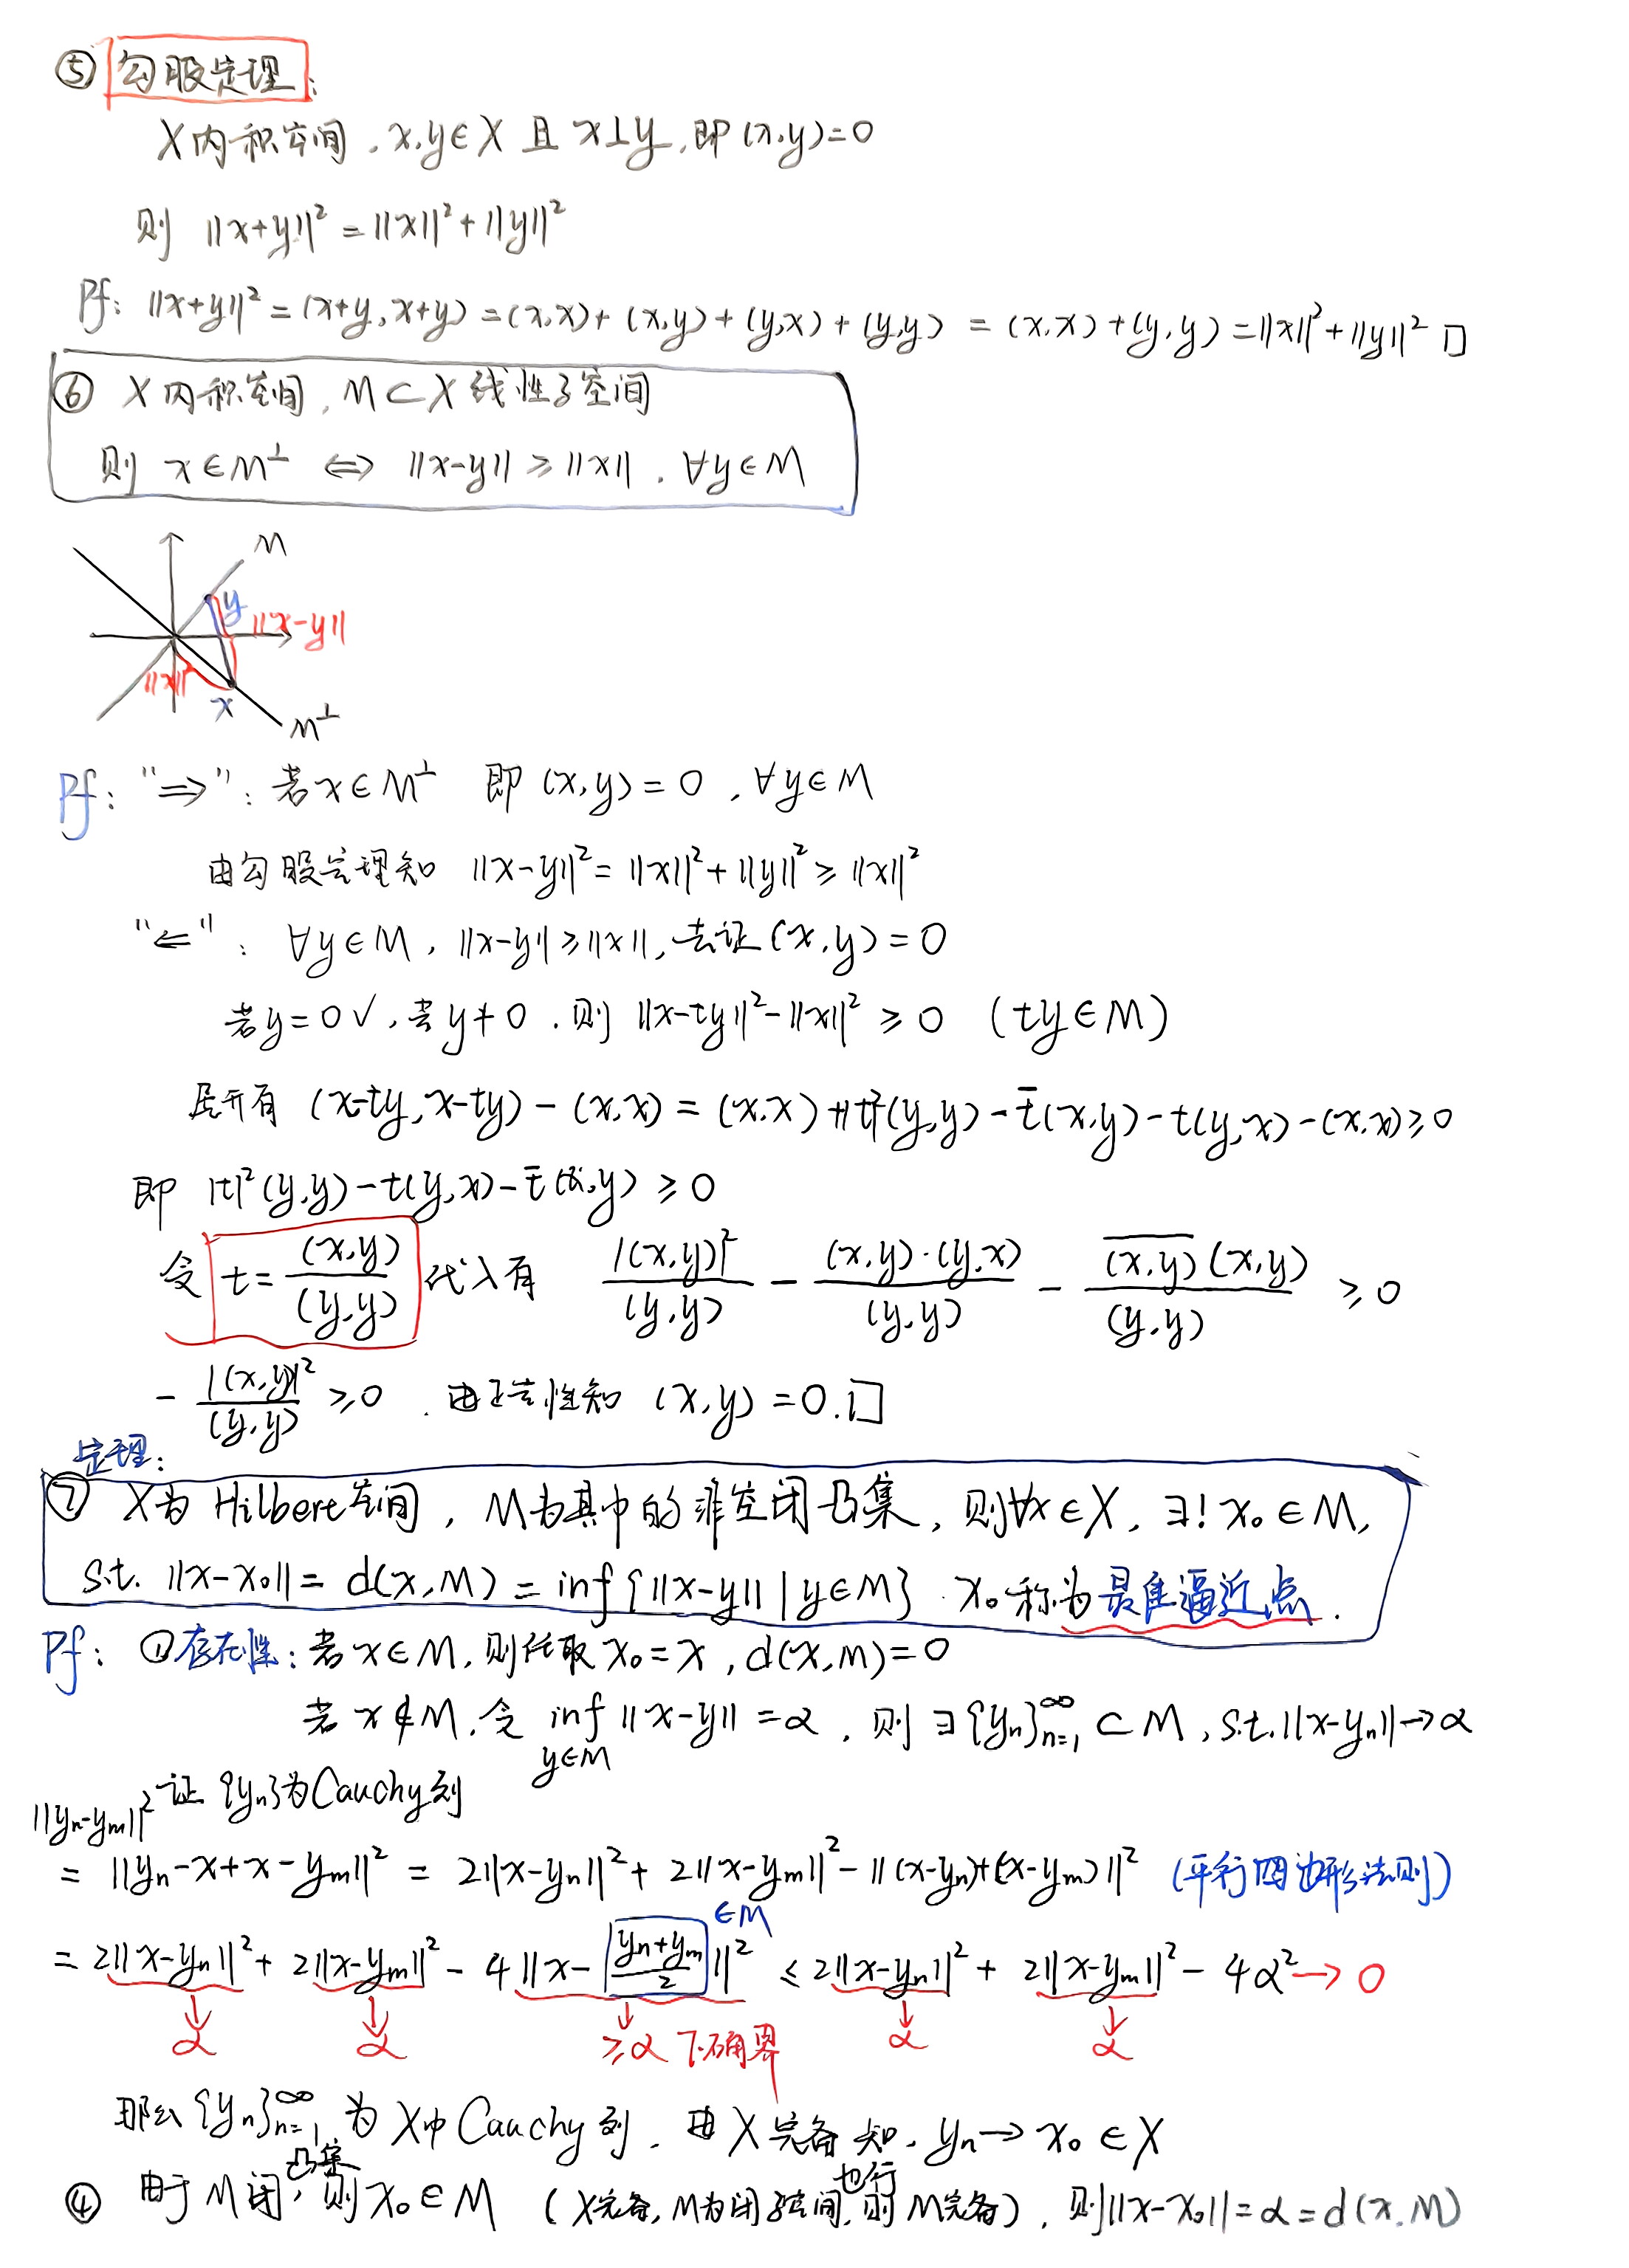 ⑤ 勾股定理:
X内积空间, x,y∈X 且 x⊥y, 即 (x,y)=0
则 ||x+y||² = ||x||² + ||y||²
Pf: ||x+y||² = (x+y, x+y) = (x,x) + (x,y) + (y,x) + (y,y) = (x,x) + (y,y) = ||x||² + ||y||² □
⑥ X内积空间, M⊂X 线性子空间
则 x∈M^⊥ ⟺ ||x-y|| ≥ ||x||, ∀y∈M
M
y
||x-y||
||x||²
x
M^⊥
Pf: "⇒": 若x∈M^⊥ 即 (x,y)=0, ∀y∈M
由勾股定理知 ||x-y||² = ||x||² + ||y||² ≥ ||x||²
"⇐": ∀y∈M, ||x-y|| ≥ ||x||, 去证 (x,y)=0
若y=0 ✓, 若y≠0, 则 ||x-ty||² - ||x||² ≥ 0 (ty∈M)
展开有 (x-ty, x-ty) - (x,x) = (x,x) + |t|²(y,y) - t̄(x,y) - t(y,x) - (x,x) ≥ 0
即 |t|²(y,y) - t(y,x) - t̄(x,y) ≥ 0
令 t = (x,y)/(y,y) 代入有 |(x,y)|²/(y,y) - (x,y)·(y,x)/(y,y) - \overline{(x,y)}(x,y)/(y,y) ≥ 0
- |(x,y)|²/(y,y) ≥ 0. 由正定性知 (x,y)=0. □
定理:
⑦ X为Hilbert空间, M为其中的非空闭凸集, 则∀x∈X, ∃! x₀∈M,
s.t. ||x-x₀|| = d(x,M) = inf{||x-y|| | y∈M} . x₀称为最佳逼近点.
Pf: ①存在性: 若x∈M, 则任取x₀=x, d(x,M)=0
若x∉M, 令 inf_{y∈M} ||x-y|| = α, 则∃{yₙ}_{n=1}^∞ ⊂ M, s.t. ||x-yₙ||→α
证{yₙ}为Cauchy列
||yₙ-yₘ||²
= ||yₙ-x+x-yₘ||² = 2||x-yₙ||² + 2||x-yₘ||² - ||(x-yₙ)+(x-yₘ)||² (平行四边形法则)
∈M
= 2||x-yₙ||² + 2||x-yₘ||² - 4||x - (yₙ+yₘ)/2||² ≤ 2||x-yₙ||² + 2||x-yₘ||² - 4α² → 0
↓ ↓ ↓ ↓ ↓
α α ≥α 下确界 α α
那么{yₙ}_{n=1}^∞ 为X中Cauchy列. 由X完备知, yₙ→x₀∈X
凸集 也行
④ 由于M闭, 则x₀∈M (X完备, M为闭子空间, 则M完备), 则||x-x₀||=α=d(x,M)